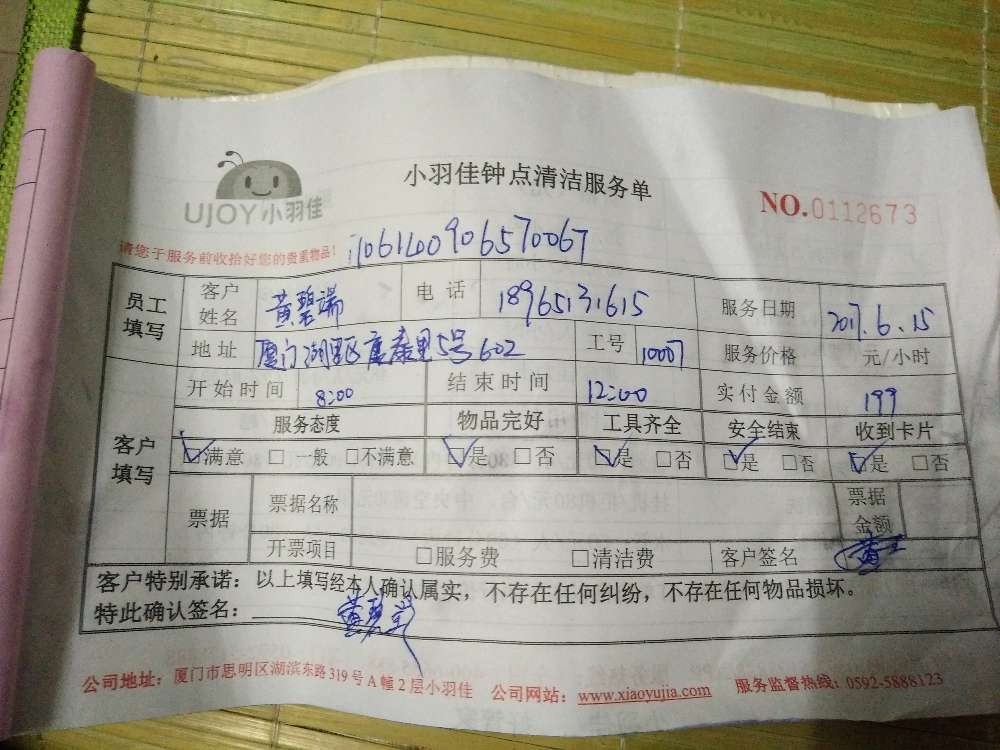 UJOY小羽佳
小羽佳钟点清洁服务单
NO.0112673
请您于服务前收拾好您的贵重物品!
员工填写 客户姓名 黄碧端 电话 18965131615 服务日期 2017.6.15
地址 厦门湖里区康泰里5号602 工号 10007 服务价格 元/小时
客户填写 开始时间 8:00 结束时间 12:00 实付金额 199
服务态度 物品完好 工具齐全 安全结束 收到卡片
☑满意 □一般 □不满意 ☑是 □否 ☑是 □否 ☑是 □否 ☑是 □否
票据 票据名称 票据金额
开票项目 □服务费 □清洁费 客户签名
客户特别承诺:以上填写经本人确认属实,不存在任何纠纷,不存在任何物品损坏。
特此确认签名:
公司地址:厦门市思明区湖滨东路319号A幢2层小羽佳 公司网站:www.xiaoyujia.com 服务监督热线:0592-5888123